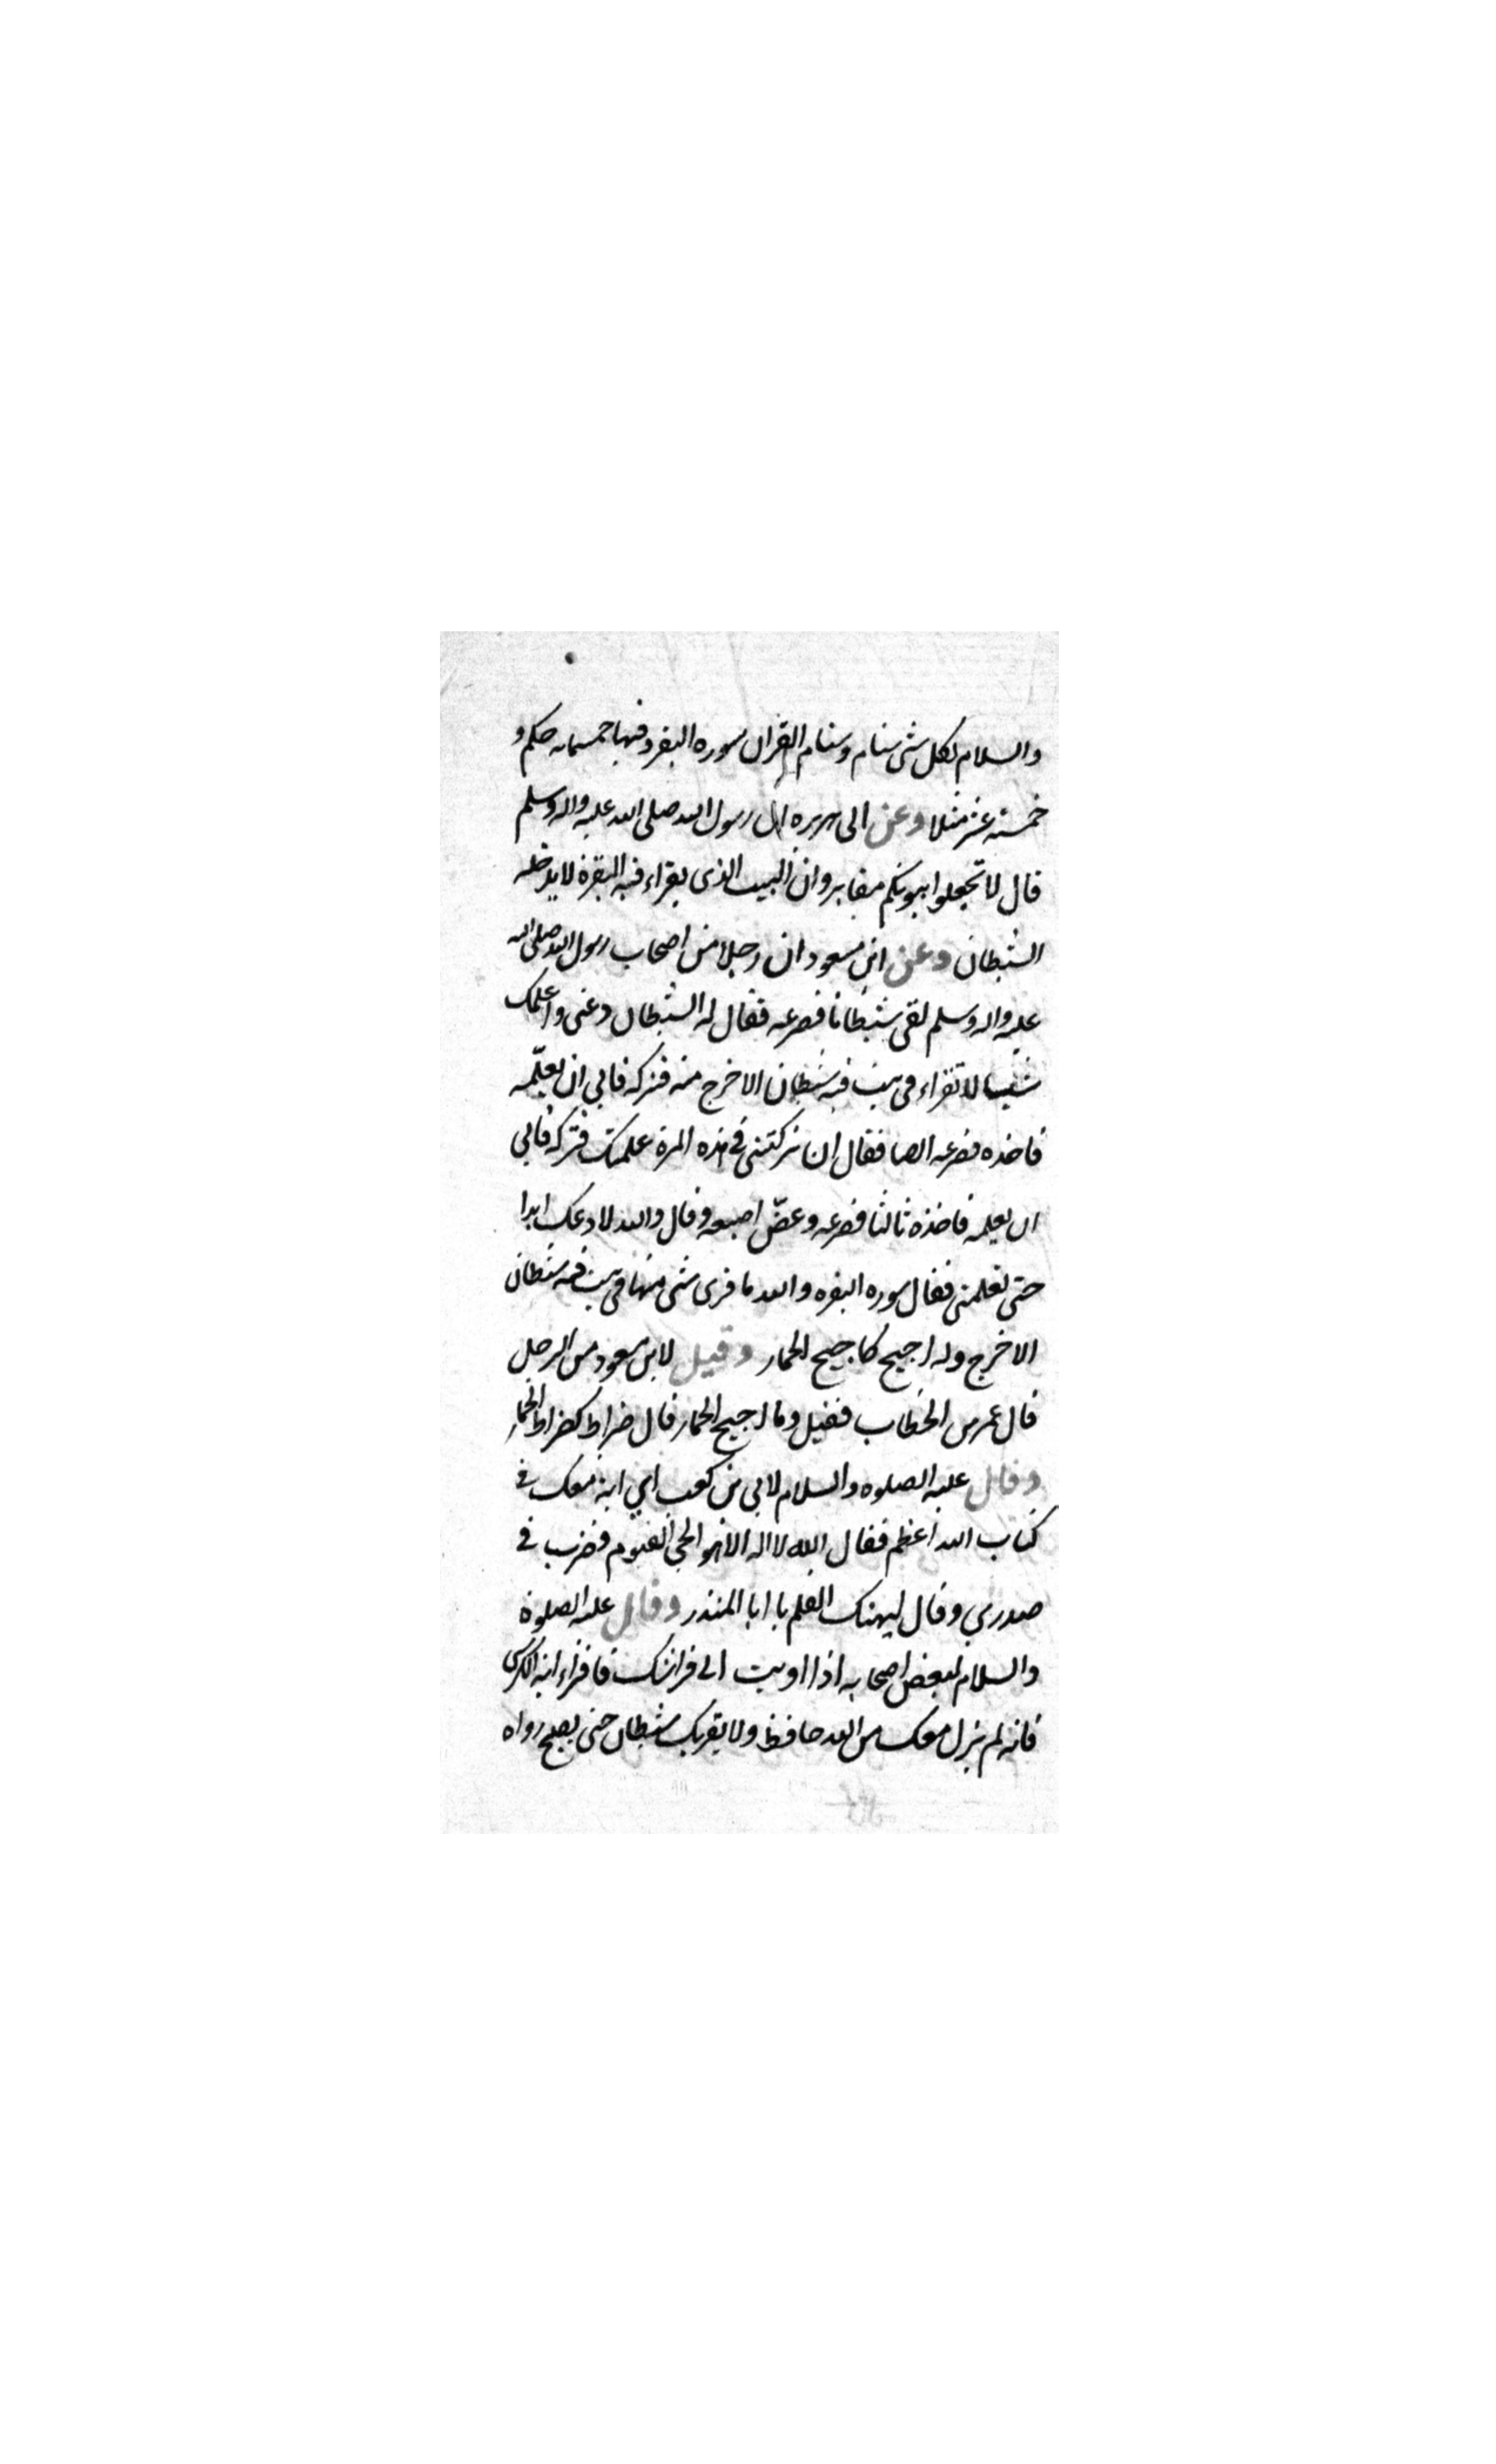 والسلام لكل شى سنام وسنام القران سوره البقره وفيها خمسمايه حكم و
خمسة عشر مثلا وعن ابى هريره ان رسول الله صلى الله عليه واله وسلم
قال لا تجعلوا بيوتكم مقابر وان البيت الذى يقراء فيه البقرة لا يدخله
الشيطان وعن ابن مسعود ان رجلا من اصحاب رسول الله صلى الله
عليه واله وسلم لقى شيطانا فصرعه فقال له الشيطان دعنى واعلمك
شيئا لا تقراء فى بيت فيه شيطان الا خرج منه فتركه فابى ان يعلّمه
فاخذه فصرعه ايضا فقال ان تركتنى فى هذه المرة علمتك فتركه فابى
ان يعلمه فاخذه ثالثا فصرعه وعضّ اصبعه وقال والله لا ادعك ابدا
حتى تعلمنى فقال سوره البقره والله ما قرى شى منها فى بيت فيه شيطان
الا خرج وله اجيح كاجيح الحمار وقيل لابن مسعود من الرجل
قال عمر بن الخطاب فقيل وما اجيح الحمار قال ضراط كضراط الحمار
وقال عليه الصلوه والسلام لابي بن كعب اي اية معك فى
كتاب الله اعظم فقال الله لا اله الا هو الحى القيّوم فضرب فى
صدري وقال ليهنك العلم يا ابا المنذر وقال عليه الصلوة
والسلام لبعض اصحابه اذا اويت الى فراشك فاقراء اية الكرسى
فانه لم يزل معك من الله حافظ ولا يقربك شيطان حتى يصبح رواه